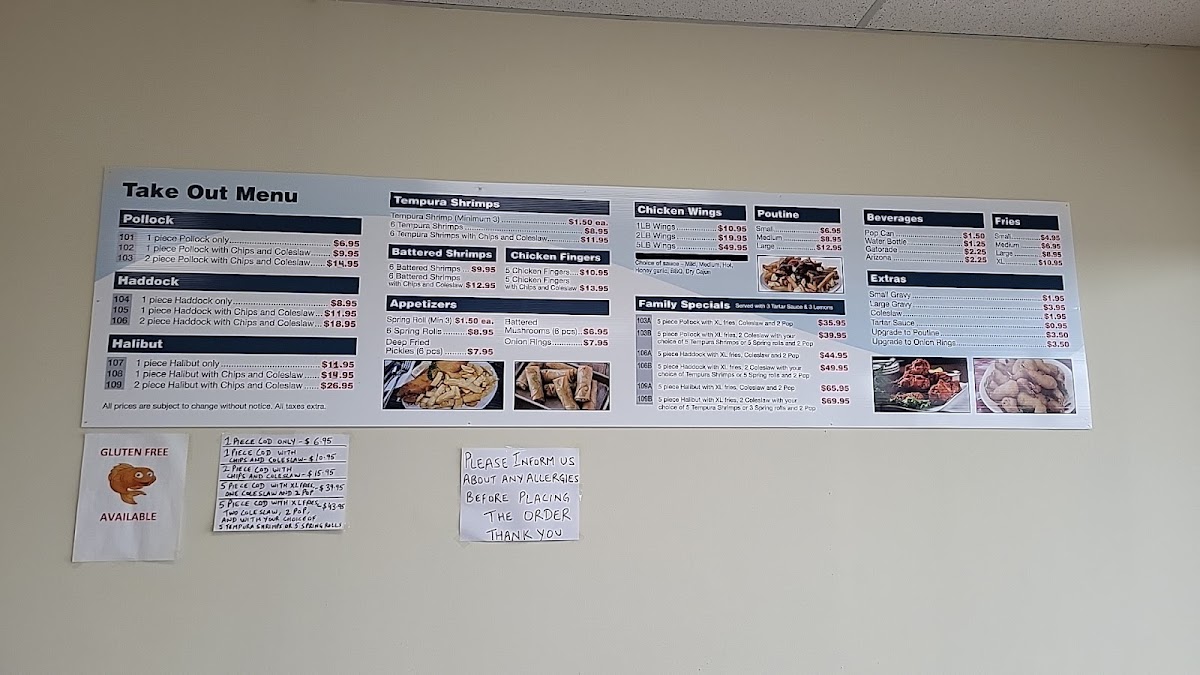 Take Out Menu
Pollock
101 1 piece Pollock only $6.95
102 1 piece Pollock with Chips and Coleslaw $9.95
103 2 piece Pollock with Chips and Coleslaw $14.95
Haddock
104 1 piece Haddock only $8.95
105 1 piece Haddock with Chips and Coleslaw $11.95
106 2 piece Haddock with Chips and Coleslaw $18.95
Halibut
107 1 piece Halibut only $11.95
108 1 piece Halibut with Chips and Coleslaw $14.95
109 2 piece Halibut with Chips and Coleslaw $26.95
All prices are subject to change without notice. All taxes extra.
Tempura Shrimps
Tempura Shrimp (Minimum 3) $1.50 ea.
6 Tempura Shrimps $8.95
6 Tempura Shrimps with Chips and Coleslaw $11.95
Battered Shrimps
6 Battered Shrimps $9.95
6 Battered Shrimps
with Chips and Coleslaw $12.95
Chicken Fingers
5 Chicken Fingers $10.95
5 Chicken Fingers
with Chips and Coleslaw $13.95
Appetizers
Spring Roll (Min 3) $1.50 ea.
6 Spring Rolls $8.95
Deep Fried
Pickles (6 pcs) $7.95
Battered
Mushrooms (6 pcs) $6.95
Onion Rings $7.95
Chicken Wings
1LB Wings $10.95
2LB Wings $19.95
5LB Wings $49.95
Choice of sauce - Mild, Medium, Hot,
Honey garlic, BBQ, Dry Cajun
Poutine
Small $6.95
Medium $8.95
Large $12.95
Family Specials Served with 3 Tartar Sauce & 3 Lemons
103A 5 piece Pollock with XL fries, Coleslaw and 2 Pop $35.95
103B 5 piece Pollock with XL fries, 2 Coleslaw with your $39.95
choice of 5 Tempura Shrimps or 5 Spring rolls and 2 Pop
106A 5 piece Haddock with XL fries, Coleslaw and 2 Pop $44.95
106B 5 piece Haddock with XL fries, 2 Coleslaw with your $49.95
choice of Tempura Shrimps or 5 Spring rolls and 2 Pop
109A 5 piece Halibut with XL fries, Coleslaw and 2 Pop $65.95
109B 5 piece Halibut with XL fries, 2 Coleslaw with your $69.95
choice of 5 Tempura Shrimps or 3 Spring rolls and 2 Pop
Beverages
Pop Can $1.50
Water Bottle $1.25
Gatorade $2.25
Arizona $2.25
Fries
Small $4.95
Medium $6.95
Large $8.95
XL $10.95
Extras
Small Gravy $1.95
Large Gravy $3.95
Coleslaw $1.95
Tartar Sauce $0.95
Upgrade to Poutine $3.50
Upgrade to Onion Rings $3.50
GLUTEN FREE
AVAILABLE
1 PIECE COD ONLY - $ 6.95
1 PIECE COD WITH
CHIPS AND COLESLAW - $10.95
2 PIECE COD WITH
CHIPS AND COLESLAW - $15.95
5 PIECE COD WITH XL FRIES,
ONE COLESLAW AND 2 POP - $39.95
5 PIECE COD WITH XL FRIES,
TWO COLESLAW, 2 POP, - $43.95
AND WITH YOUR CHOICE OF
5 TEMPURA SHRIMPS OR 5 SPRING ROLLS
PLEASE INFORM US
ABOUT ANY ALLERGIES
BEFORE PLACING
THE ORDER
THANK YOU